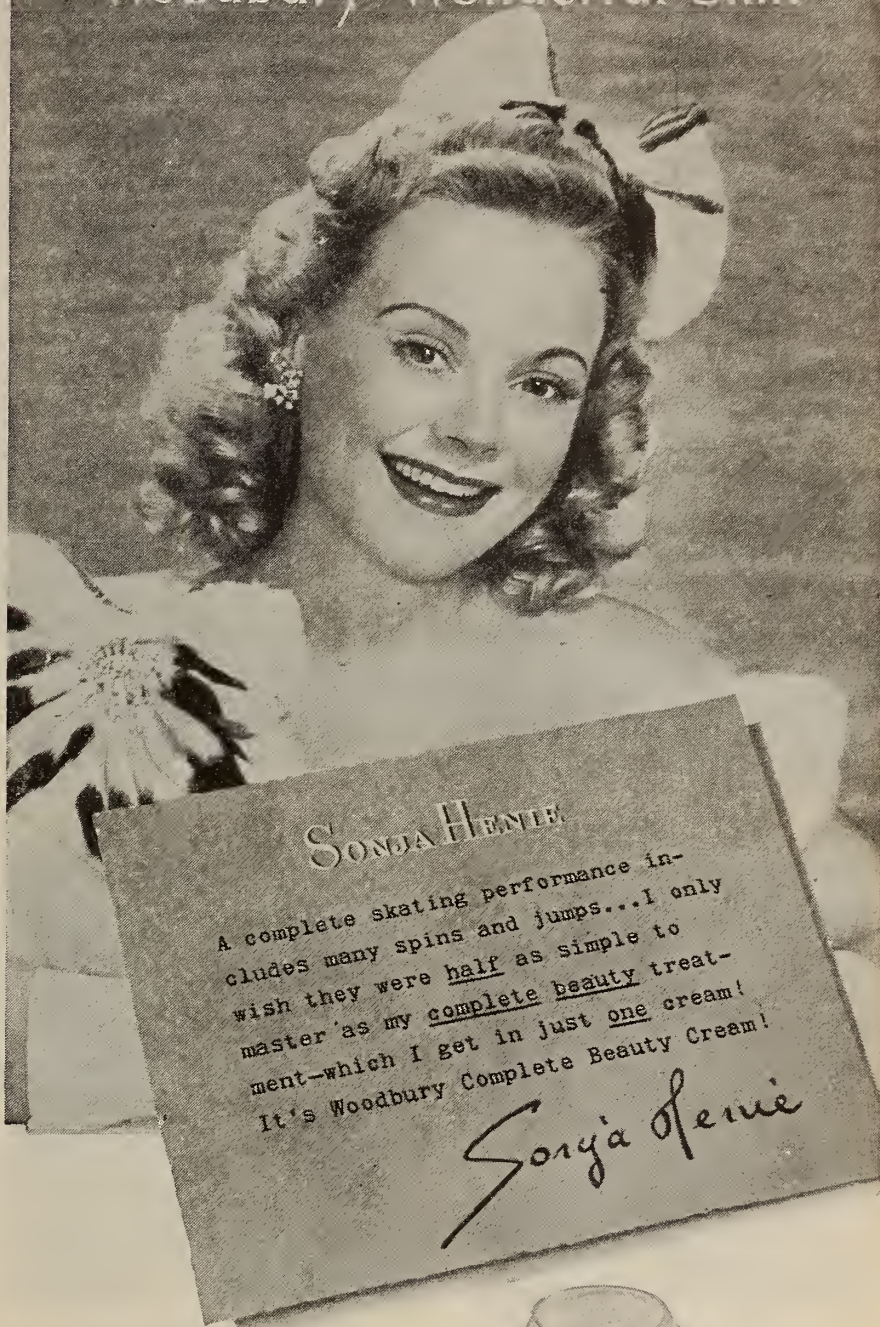 Woodbury Wonderful Skin
SONJA HENIE
A complete skating performance in-
cludes many spins and jumps...I only
wish they were half as simple to
master as my complete beauty treat-
ment—which I get in just one cream!
It's Woodbury Complete Beauty Cream!
Sonja Henie